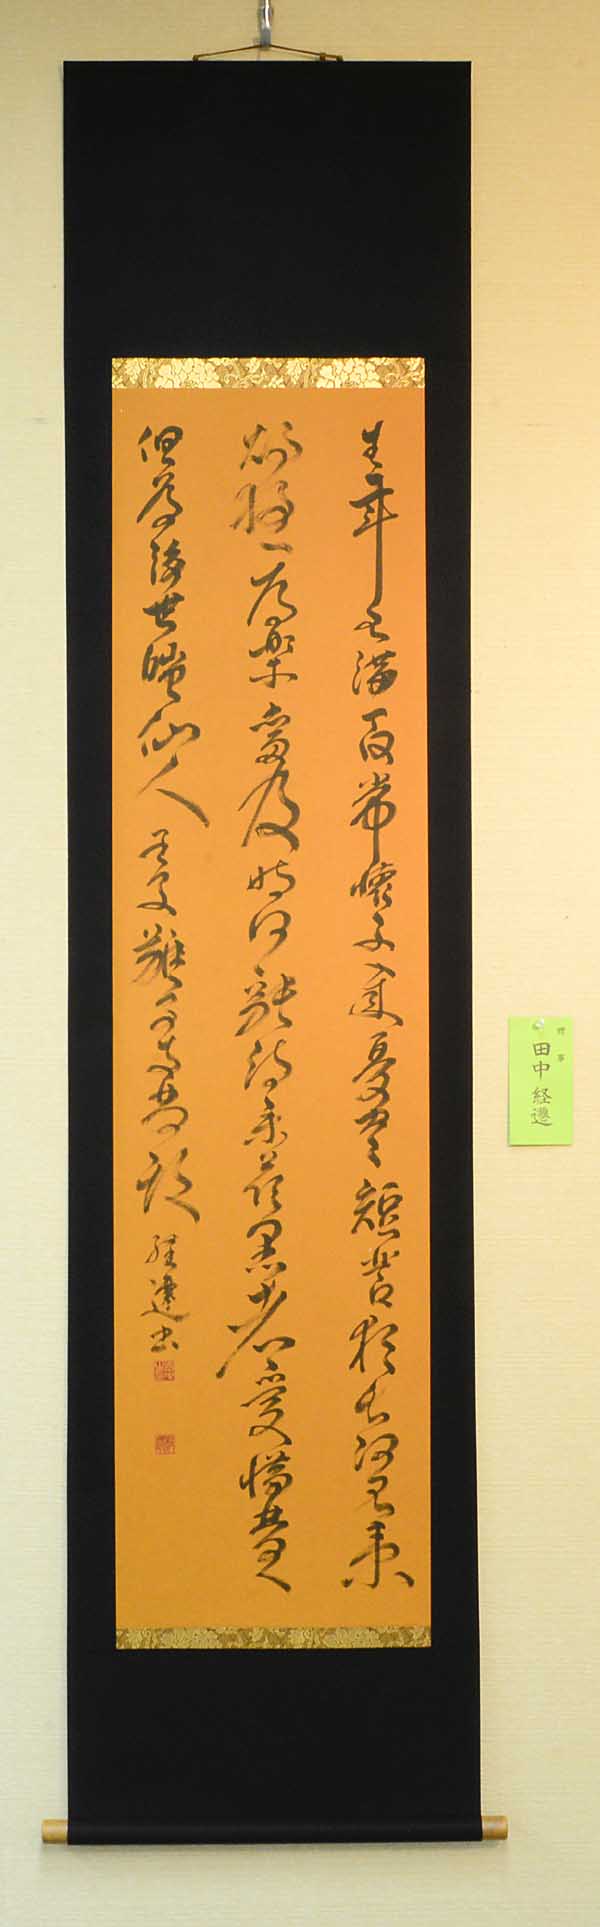 生年不満百常懐千歳憂昼短苦夜長何不秉
燭遊為楽当及時何能待来茲愚者愛惜費
但為後世嗤仙人王子喬難可与等期 経遷書
理事
田中 経遷